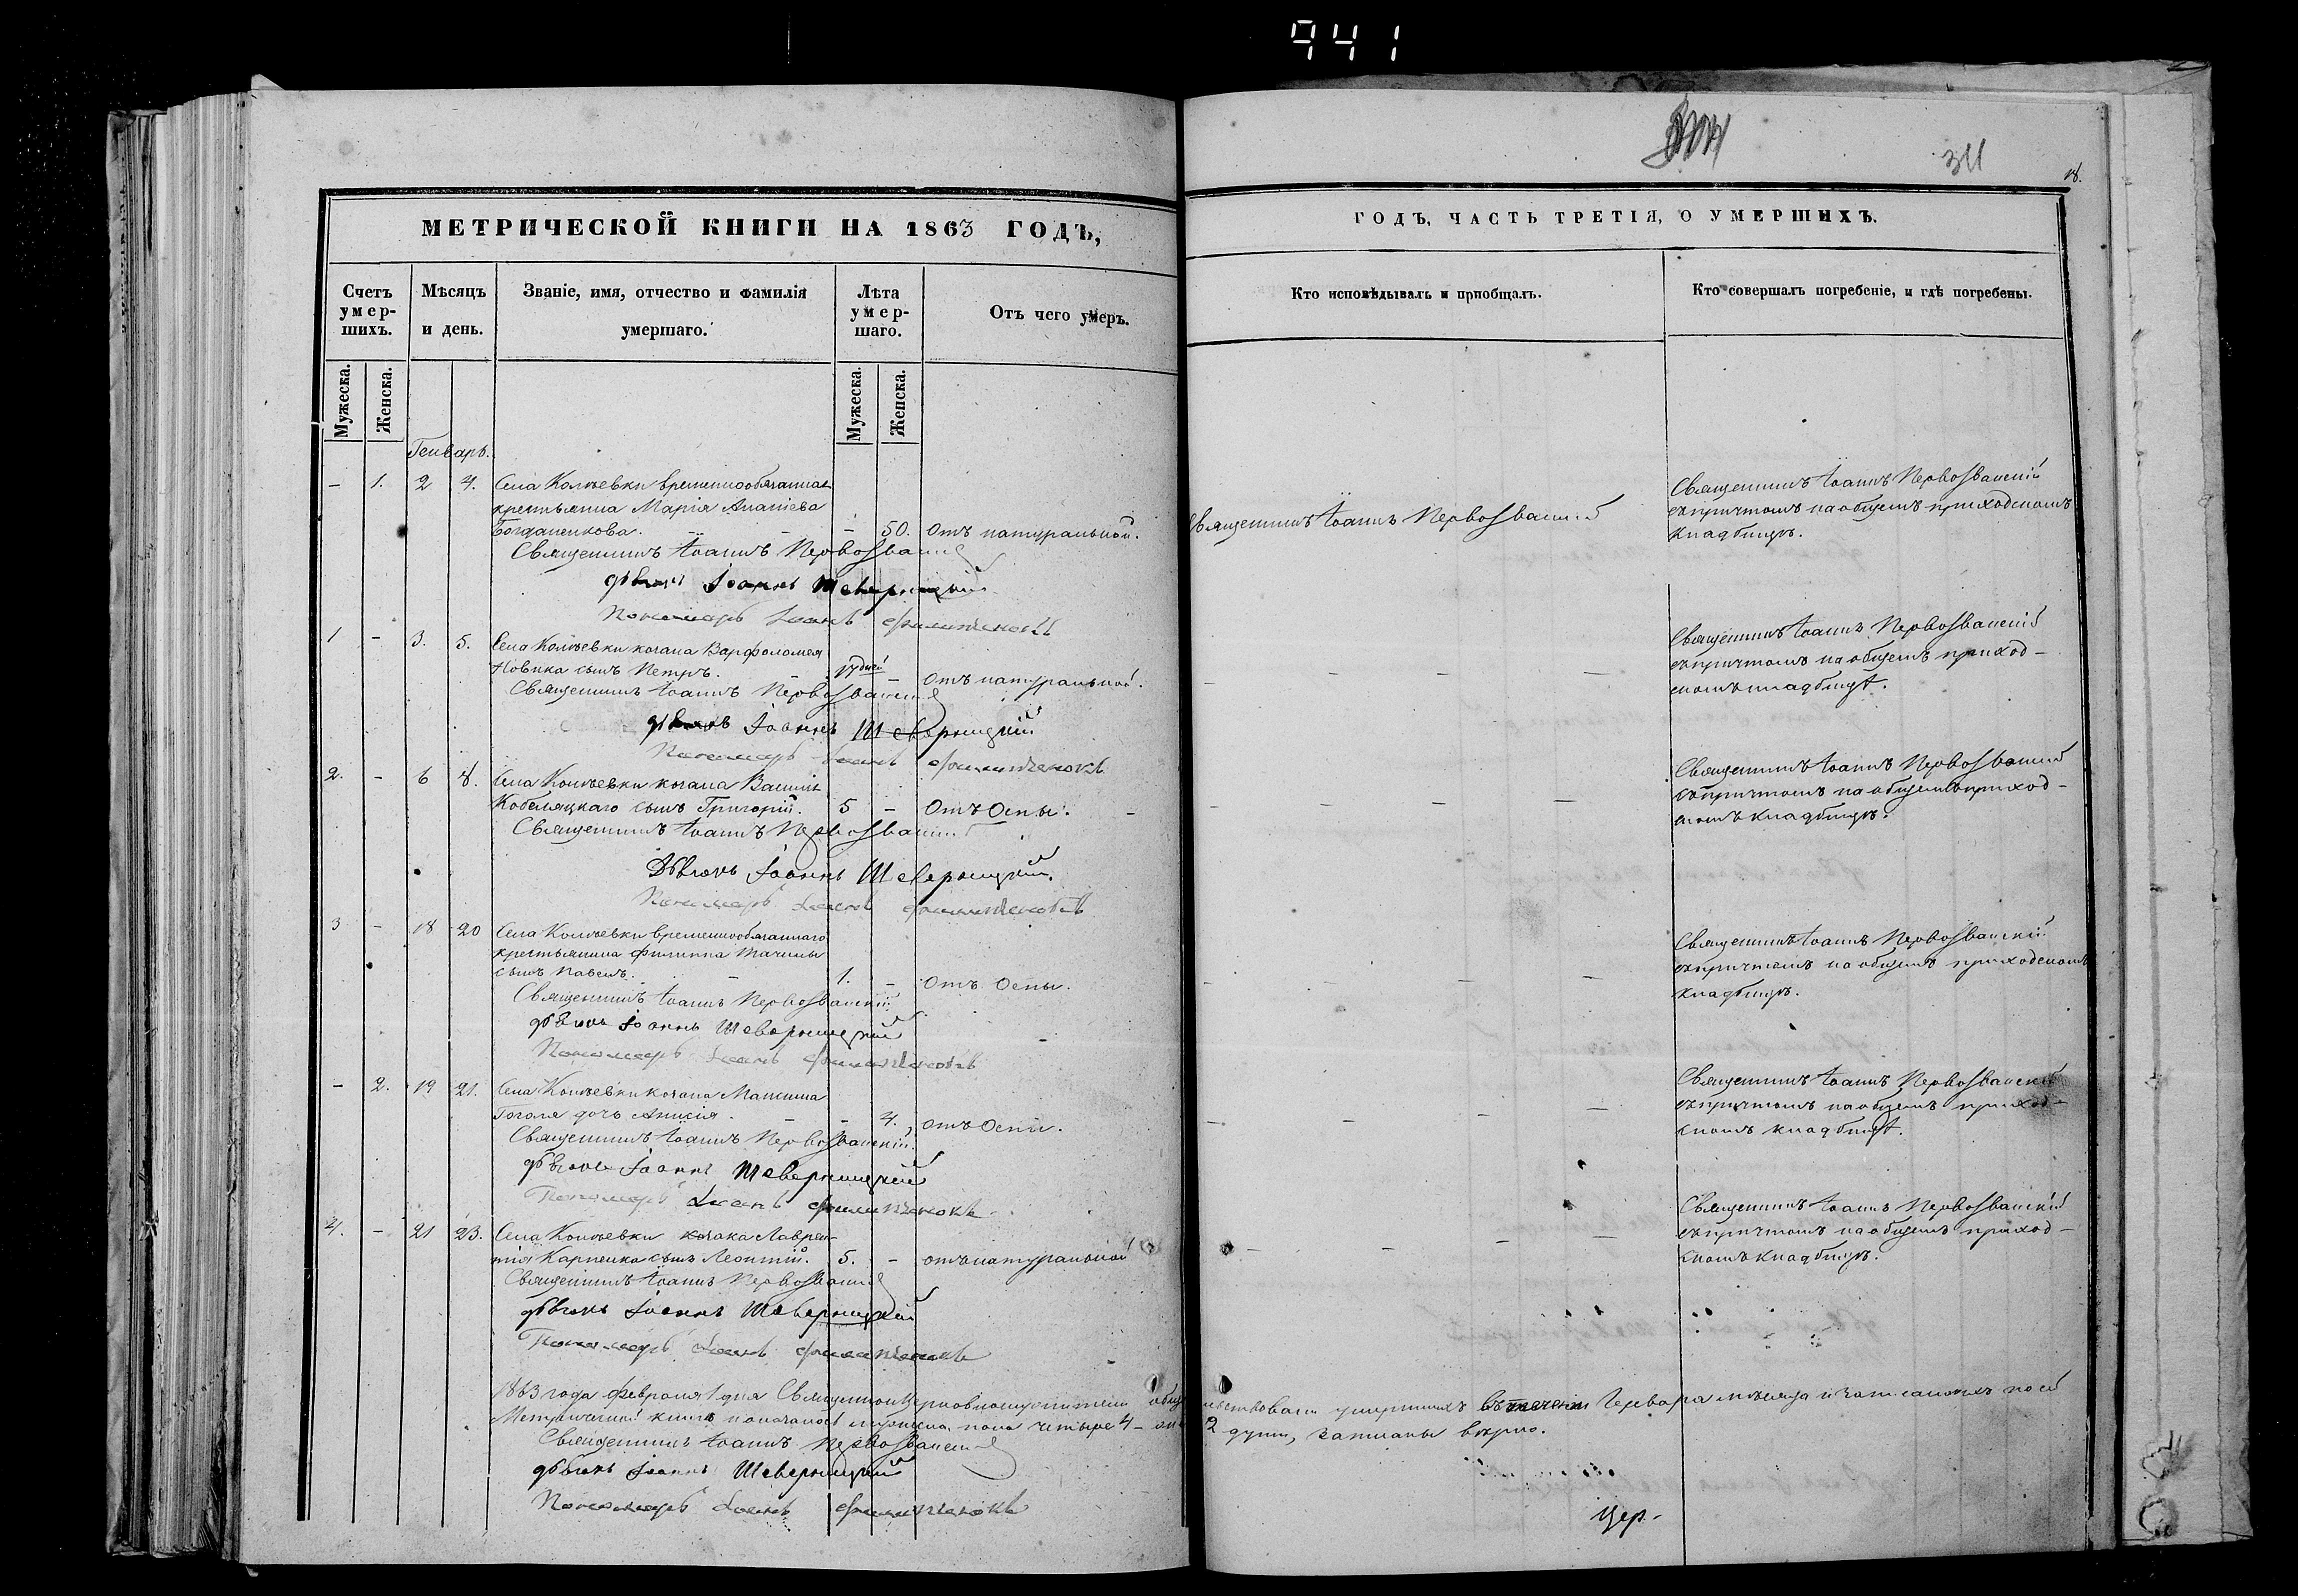 941
311
18.
МЕТРИЧЕСКОЙ КНИГИ НА 1863 ГОДЪ,
ГОДЪ, ЧАСТЬ ТРЕТІЯ, О УМЕРШИХЪ.
Счетъ умер-шихъ.
Мѣсяцъ и день.
Званіе, имя, отчество и фамилія умершаго.
Лѣта умер-шаго.
Отъ чего умеръ.
Кто исповѣдывалъ и пріобщалъ.
Кто совершалъ погребеніе, и гдѣ погребены.
Мужеска.
Женска.
Мужеска.
Женска.
Генварь.
- 1. 2 4. Села временнообязанная
крестьянка Марія Ананіева
Богданенкова. - - 50. Отъ натуральной.
Священникъ Іоаннъ Первозванскій
Священникъ Іоаннъ Первозванскій
съ причтомъ на общемъ приходскомъ
кладбищѣ.
Священникъ Іоаннъ Первозванскій
дьяконъ Іоаннъ Шеверницкій
Пономарь Іоаннъ
1 - 3. 5. Села козака Варфоломея
Новика сынъ Петръ. - 17 дней - Отъ натуральной.
Священникъ Іоаннъ Первозванскій
съ причтомъ на общемъ приход-
скомъ кладбищѣ.
Священникъ Іоаннъ Первозванскій
дьяконъ Іоаннъ Шеверницкій
Пономарь Іоаннъ
2. - 6 8. Села козака Василія
Кобеляцкаго сынъ Григорій. 5 - Отъ Оспы.
Священникъ Іоаннъ Первозванскій
съ причтомъ на общемъ приход-
скомъ кладбищѣ.
Священникъ Іоаннъ Первозванскій
Дьяконъ Іоаннъ Шеверницкій.
Пономарь Іоаннъ
3 - 18 20 Села временнообязаннаго
крестьянина Филиппа
сынъ Павелъ. - 1. - Отъ Оспы.
Священникъ Іоаннъ Первозванскій
съ причтомъ на общемъ приходскомъ
кладбищѣ.
Священникъ Іоаннъ Первозванскій
дьяконъ Іоаннъ Шеверницкій
Пономарь Іоаннъ
- 2. 19 21. Села козака Максима
Гоголя дочь Анисія. - - 4. отъ Оспы.
Священникъ Іоаннъ Первозванскій
съ причтомъ на общемъ приход-
скомъ кладбищѣ.
Священникъ Іоаннъ Первозванскій
дьяконъ Іоаннъ Шеверницкій
Пономарь Іоаннъ
4. - 21 23. Села козака Лаврен-
тія Карпенка сынъ Леонтій. 5. - отъ натуральной
Священникъ Іоаннъ Первозванскій
съ причтомъ на общемъ приход-
скомъ кладбищѣ.
Священникъ Іоаннъ Первозванскій
дьяконъ Іоаннъ Шеверницкій
Пономарь Іоаннъ
1863 года февраля 1 дня умершихъ въ теченіи Генваря мѣсяца и записанныхъ по сей
Метрической книгѣ мужеска пола четыре 4 - 2 души, записаны вѣрно.
Священникъ Іоаннъ Первозванскій
дьяконъ Іоаннъ Шеверницкій
Пономарь Іоаннъ
Цер-